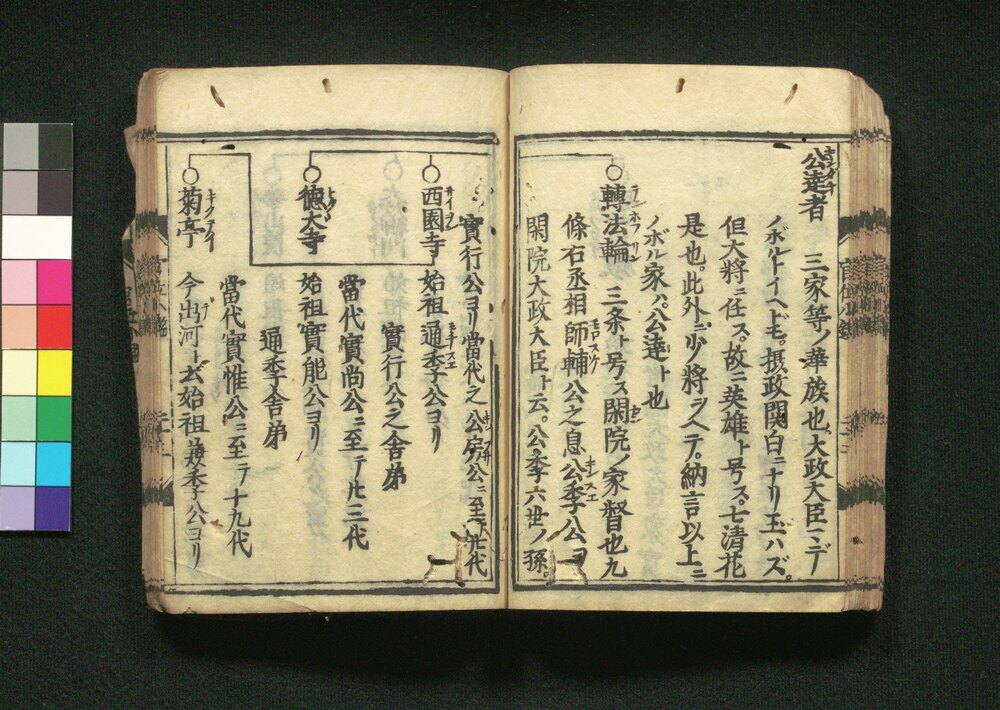 公達者 三家等ノ華族也大政大臣ニデ
ノボルトイヘドモ。摂政関白ニナリ玉ハズ。
但大將ニ任ス。故ニ英雄ト号ス。七清花
是也。此外ニ少將ヲヘテ。納言以上ニ
ノボル家ハ公達ト也
轉法輪 三条ト号ス閑院ノ家督也九
條右丞相師輔公之息公季公ヨリ
閑院大政大臣ト云。公季六世ノ孫。
實行公ヨリ當代之公房公ニ至
西園寺 始祖通季公ヨリ
實行公之舎弟
德大寺 當代實尚公ニ至テ廿三代
始祖實能公ヨリ
通季舎弟
當代實惟公ニ至テ十九代
菊亭 今出河ト云始祖兼季公ヨリ